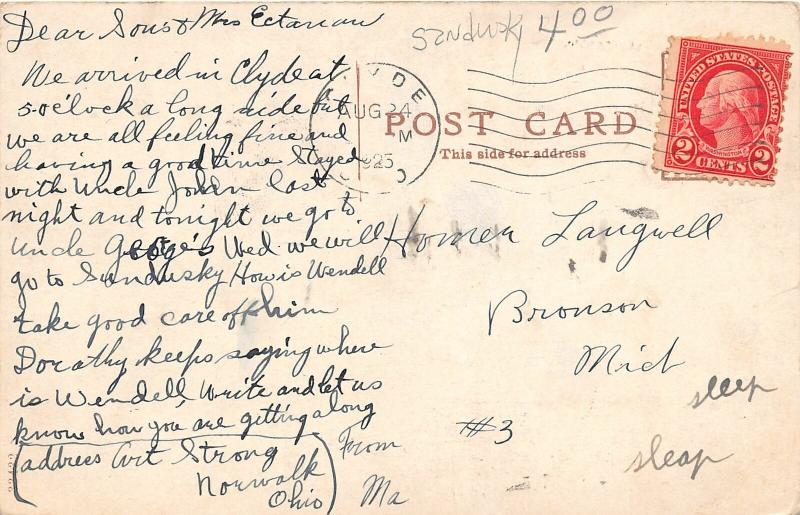 Dear Sons & Mrs
We arrived in Clyde at
5-oclock a long ride but
we are all feeling fine and
having a good time Stayed
with Uncle John last
night and tonight we go to
Uncle George's Wed. we will
go to Sandusky How is Wendell
take good care of him
Dorathy keeps saying where
is Wendell, Write and let us
know how you are getting along
(address Art Strong
Norwalk
Ohio)
From
Ma
Sandusky 4.00
YDE
AUG 24
M
1925
O
POST CARD
This side for address
UNITED STATES POSTAGE
WASHINGTON
2 CENTS 2
Homer Langwell
Bronson
Mich
#3
sleep
sleap